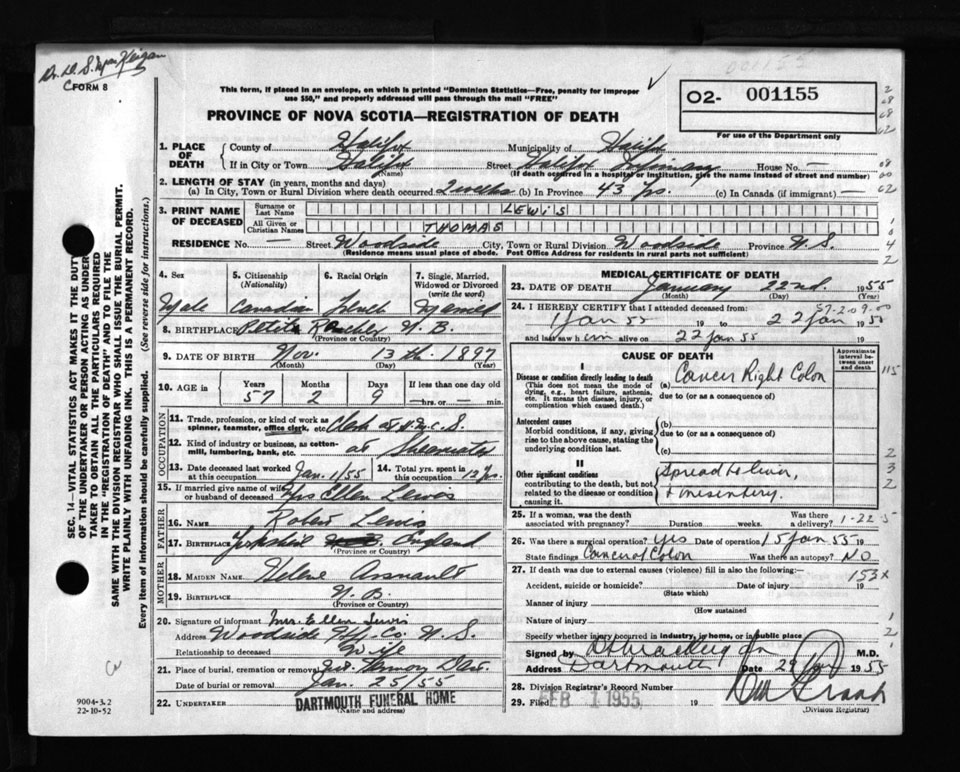 FORM 8
This form, if placed in an envelope, on which is printed "Dominion Statistics—Free, penalty for improper
use $50," and properly addressed will pass through the mail "FREE"
PROVINCE OF NOVA SCOTIA—REGISTRATION OF DEATH
O2- 001155
For use of the Department only
1. PLACE OF DEATH
County of Halifax Municipality of Halifax
If in City or Town Halifax Street Halifax Infirmary House No. —
(Name) (If death occurred in a hospital or institution, give the name instead of street and number)
2. LENGTH OF STAY (in years, months and days)
(a) In City, Town or Rural Division where death occurred 2 weeks (b) In Province 43 yrs. (c) In Canada (if immigrant) —
3. PRINT NAME OF DECEASED
Surname or Last Name LEWIS
All Given or Christian Names THOMAS
RESIDENCE No. — Street Woodside City, Town or Rural Division Woodside Province N.S.
(Residence means usual place of abode. Post Office Address for residents in rural parts not sufficient)
4. Sex
Male
5. Citizenship
(Nationality)
Canadian
6. Racial Origin
French
7. Single, Married,
Widowed or Divorced
(write the word)
Married
8. BIRTHPLACE Petite N.B.
(Province or Country)
9. DATE OF BIRTH Nov. 13th. 1897
(Month) (Day) (Year)
10. AGE in
Years Months Days If less than one day old
57 2 9 —hrs. or — min.
OCCUPATION
11. Trade, profession, or kind of work as
spinner, teamster, office clerk, etc.
12. Kind of industry or business, as cotton-
mill, lumbering, bank, etc. at Shearwater
13. Date deceased last worked
at this occupation Jan. 1/55
14. Total yrs. spent in
this occupation 12 yrs.
15. If married give name of wife
or husband of deceased Mrs Ellen Lewis
FATHER
16. NAME Robert Lewis
17. BIRTHPLACE Yorkshire England
(Province or Country)
MOTHER
18. MAIDEN NAME Helene Arsnault
19. BIRTHPLACE N.B.
(Province or Country)
20. Signature of informant Mrs. Ellen Lewis
Address Woodside Hfx. Co. N.S.
Relationship to deceased Wife
21. Place of burial, cremation or removal Mt. Hermon Dart.
Date of burial or removal Jan. 25/55
22. UNDERTAKER DARTMOUTH FUNERAL HOME
(Name and address)
MEDICAL CERTIFICATE OF DEATH
23. DATE OF DEATH January 22nd. 1955
(Month) (Day) (Year)
24. I HEREBY CERTIFY that I attended deceased from:
1 Jan 55 19 to 22 Jan 19 55
and last saw him alive on 22 Jan 55 19
CAUSE OF DEATH
Approximate interval between onset and death
I
Disease or condition directly leading to death
(This does not mean the mode of dying, e.g., heart failure, asthenia, etc. It means the disease, injury, or complication which caused death.)
(a) Cancer Right Colon
due to (or as a consequence)
Antecedent causes
Morbid conditions, if any, giving rise to the above cause, stating the underlying condition last.
(b)
due to (or as a consequence)
(c)
II
Other significant conditions
contributing to the death, but not related to the disease or condition causing it.
Spread to liver,
+ mesentery.
25. If a woman, was the death
associated with pregnancy? Duration weeks. Was there a delivery?
26. Was there surgical operation? Yes Date of operation 15 Jan 55 19
State findings Cancer of Colon Was there an autopsy? NO
27. If death was due to external causes (violence) fill in also the following:—
153X
Accident, suicide or homicide? Date of injury 19
(State which)
Manner of injury
(How sustained)
Nature of injury
Specify whether injury occurred in industry, in home, or in public place
Signed by M.D.
Address Dartmouth Date 1955
28. Division Registrar's Record Number
29. Filed FEB 1 1955 19
(Division Registrar)
SEC. 14—VITAL STATISTICS ACT MAKES IT THE DUTY
OF THE UNDERTAKER OR PERSON ACTING AS UNDER-
TAKER TO OBTAIN ALL THE PARTICULARS REQUIRED
IN THE "REGISTRATION OF DEATH" AND TO FILE THE
SAME WITH THE DIVISION REGISTRAR WHO SHALL ISSUE THE BURIAL PERMIT.
WRITE PLAINLY WITH UNFADING INK. THIS IS A PERMANENT RECORD.
Every item of information should be carefully supplied. (See reverse side for instructions.)
9004-3.2
22-10-52